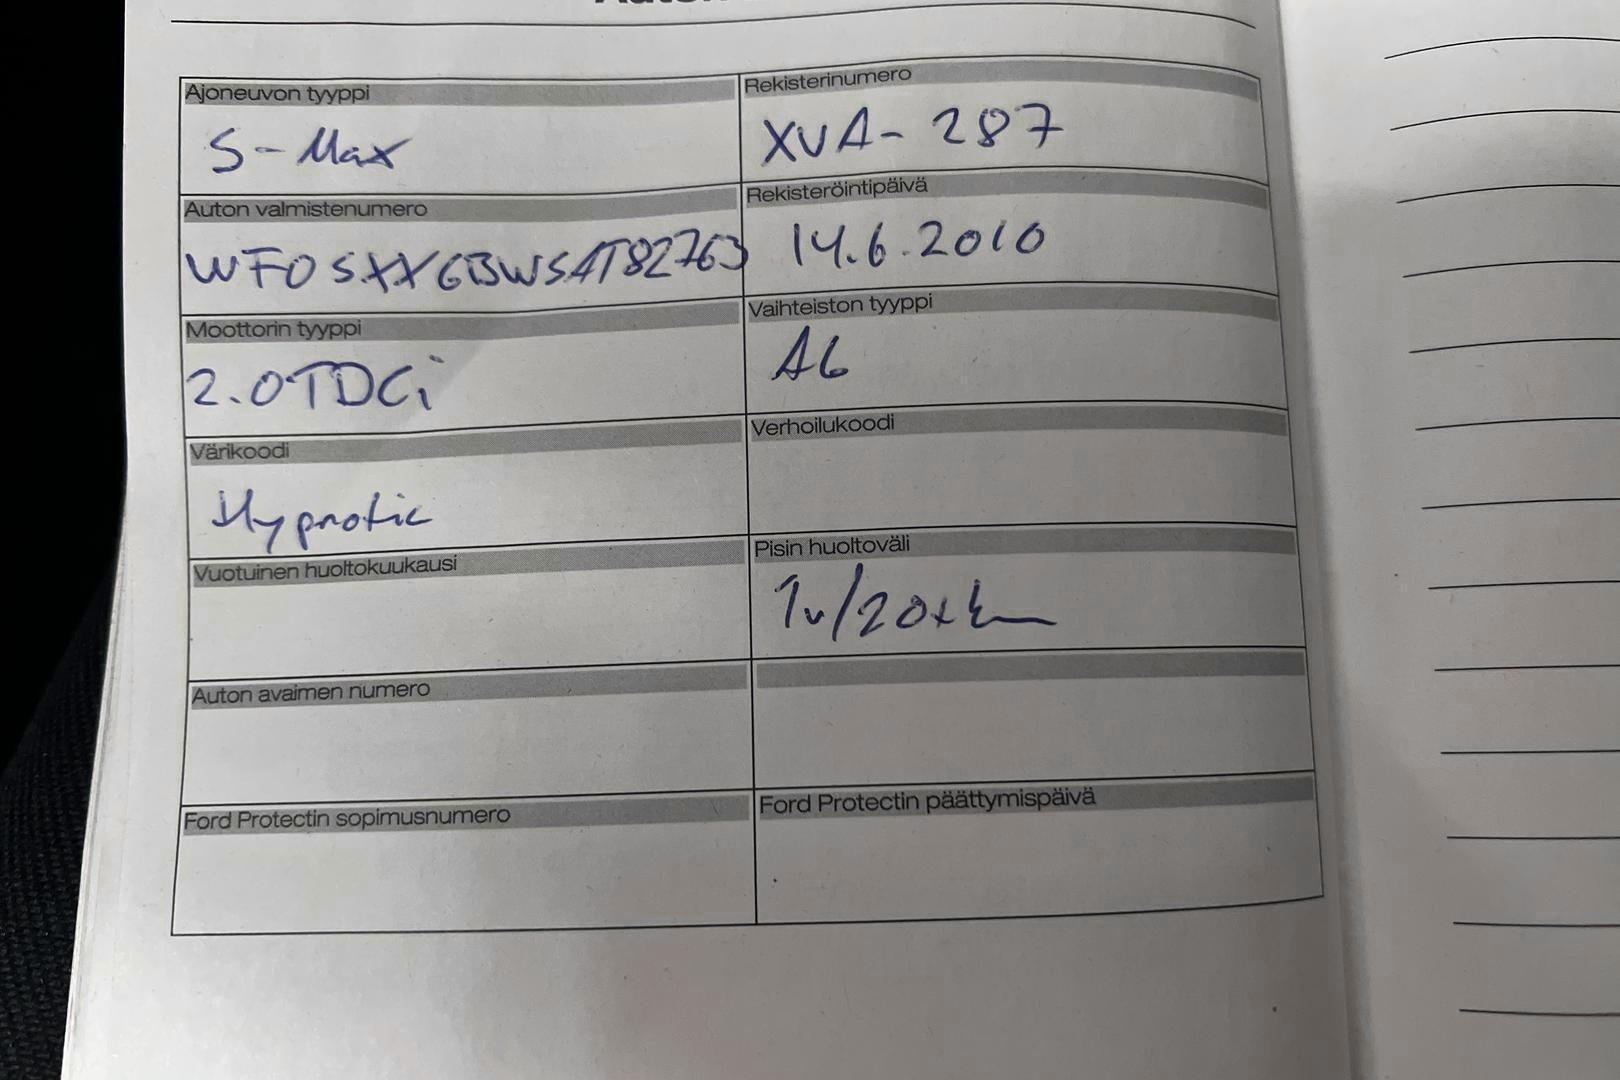 Ajoneuvon tyyppi
S-Max
Rekisterinumero
XVA-287
Auton valmistenumero
WF0SXXGBWSAT82763
Rekisteröintipäivä
14.6.2010
Moottorin tyyppi
2.0TDCi
Vaihteiston tyyppi
A6
Värikoodi
Hypnotic
Verhoilukoodi
Vuotuinen huoltokuukausi
Pisin huoltoväli
1v/20tkm
Auton avaimen numero
Ford Protectin sopimusnumero
Ford Protectin päättymispäivä